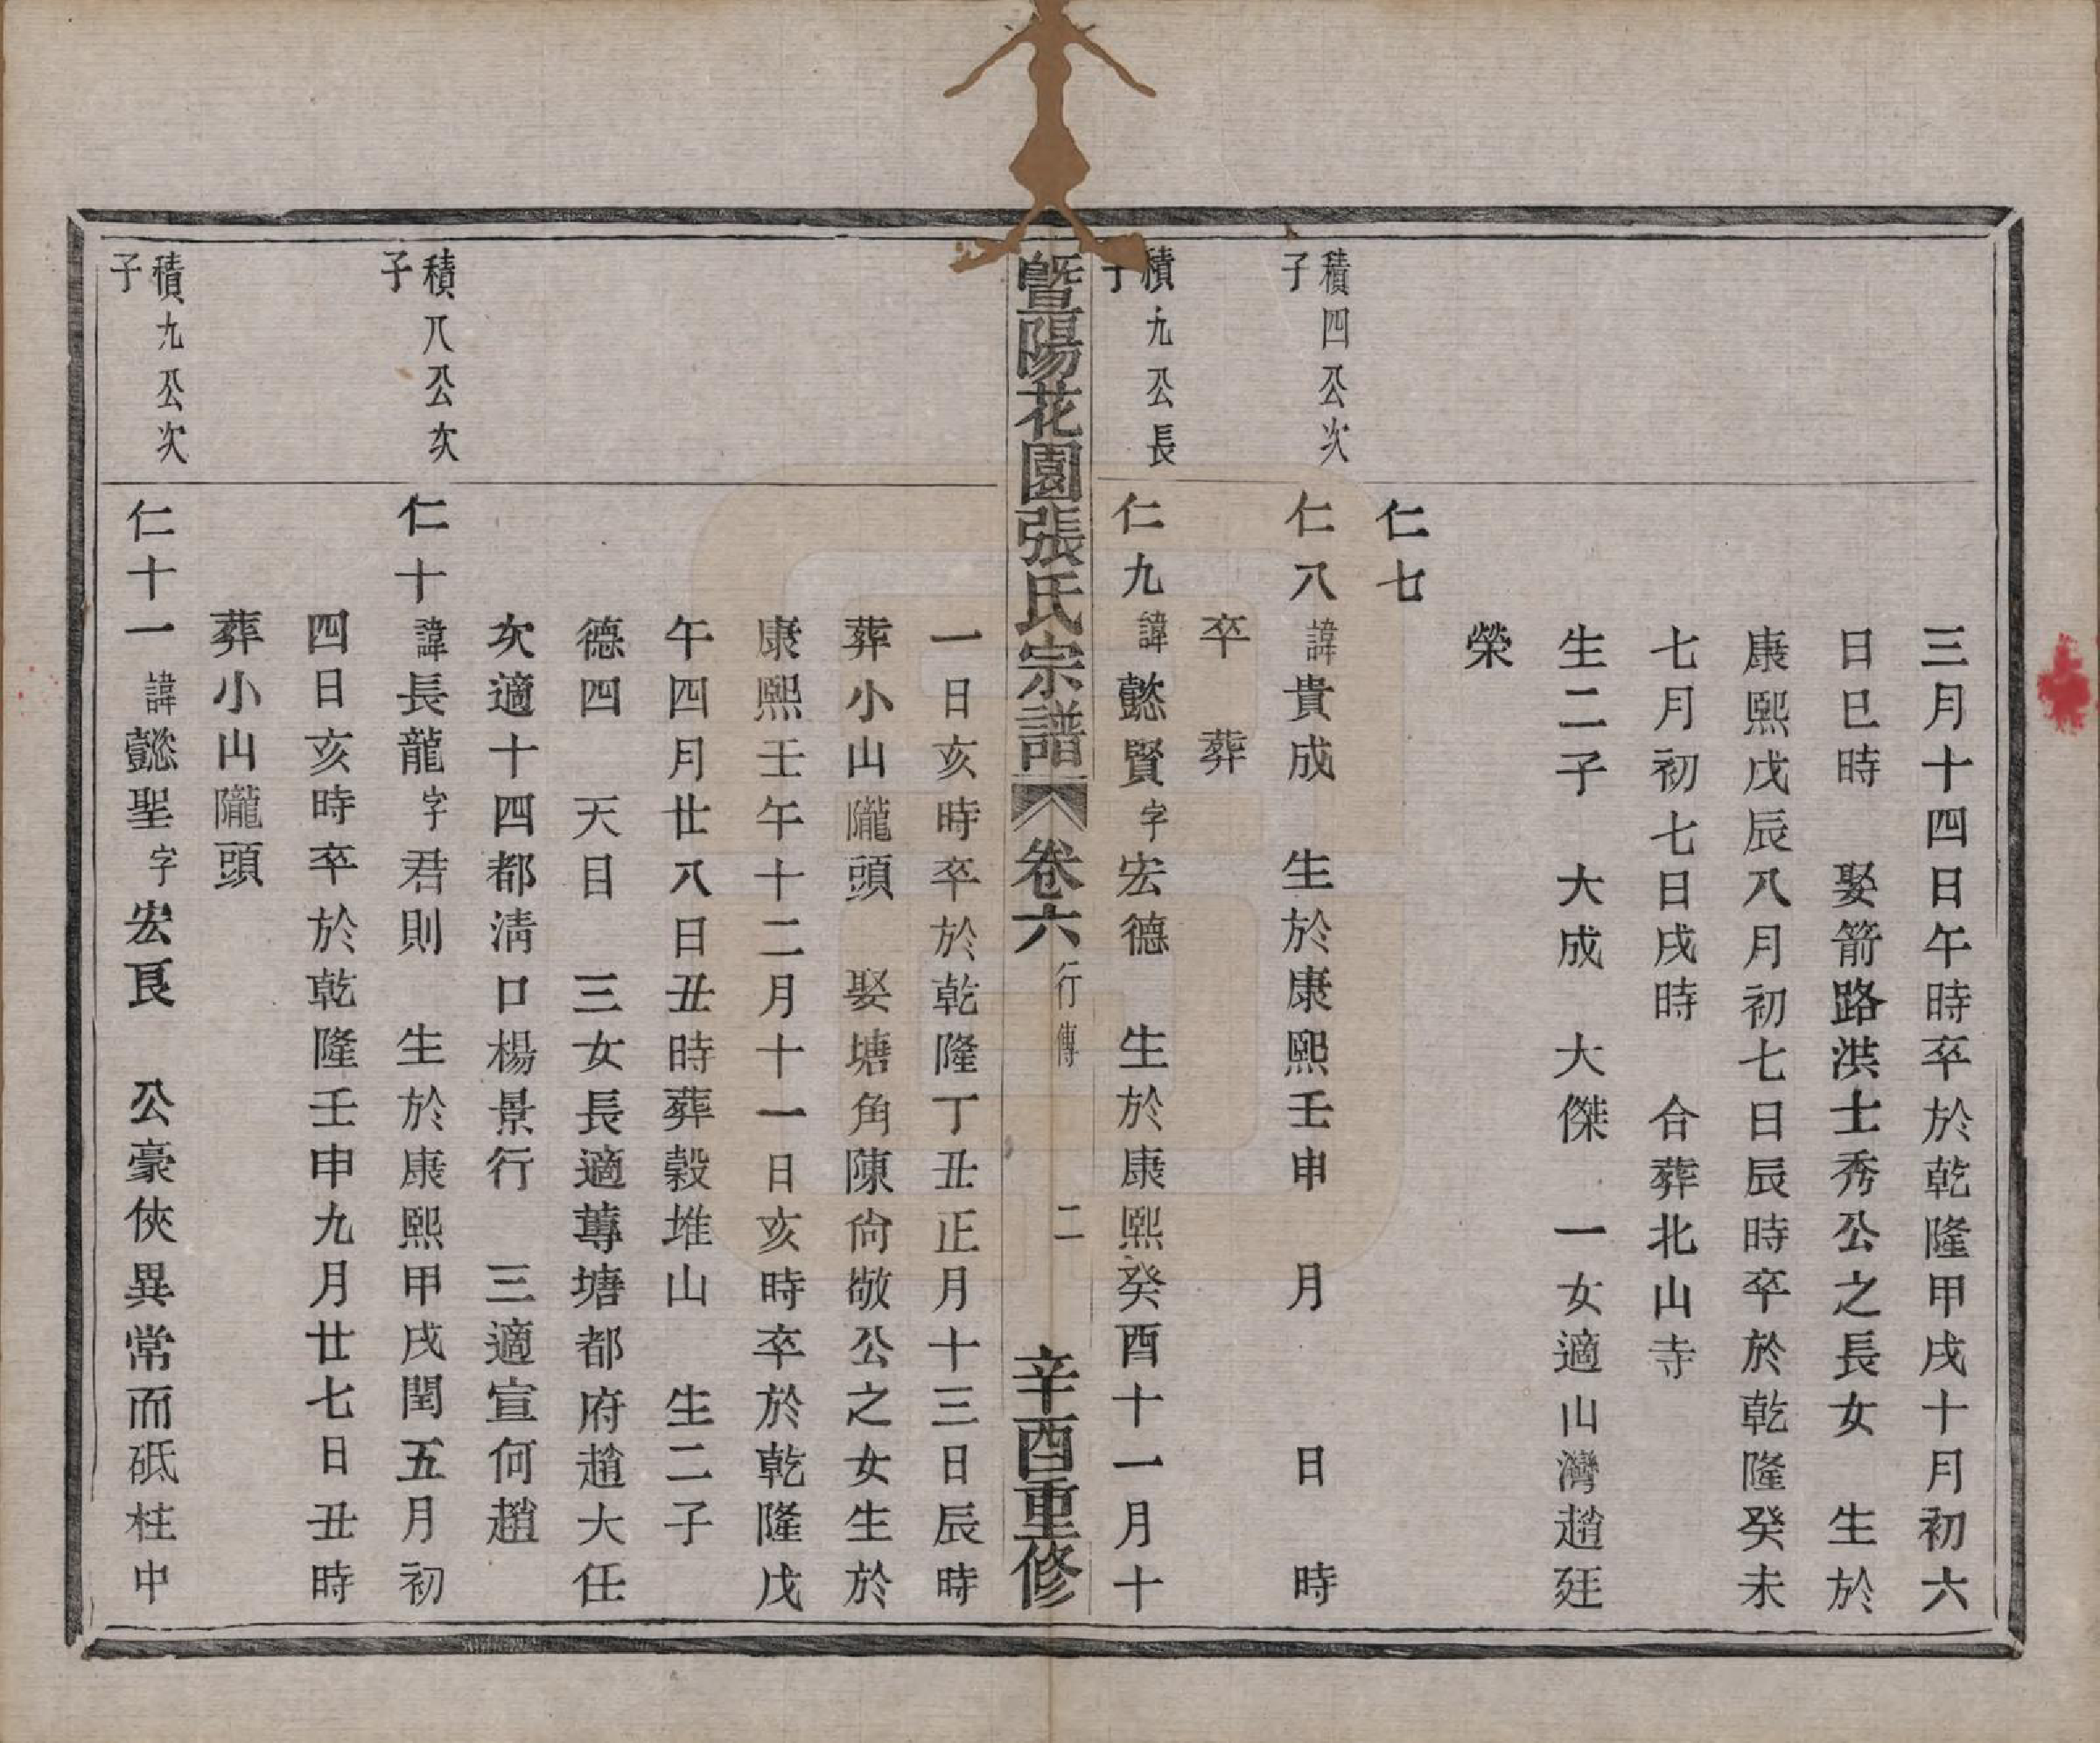 三月十四日午時卒於乾隆甲戌十月初六
日巳時　娶箭路洪士秀公之長女　生於
康熙戊辰八月初七日辰時卒於乾隆癸未
七月初七日戌時　合葬北山寺
生二子　大成　大傑　一女適山灣趙廷
榮
仁七
積四公次
子
仁八諱貴成　生於康熙壬申　月　日　時
卒　葬
積九公長
子
仁九諱懿賢字宏德　生於康熙癸酉十一月十
暨陽花園張氏宗譜　卷六　行傳　二　辛酉重修
一日亥時卒於乾隆丁丑正月十三日辰時
葬小山隴頭　娶塘角陳尙敬公之女生於
康熙壬午十二月十一日亥時卒於乾隆戊
午四月廿八日丑時葬穀堆山　生二子
德四　天目　三女長適蓴塘都府趙大任
次適十四都淸口楊景行　三適宣何趙
積八公次
子
仁十諱長龍字君則　生於康熙甲戌閏五月初
四日亥時卒於乾隆壬申九月廿七日丑時
葬小山隴頭
積九公次
子
仁十一諱懿聖字宏良　公豪俠異常而砥柱中